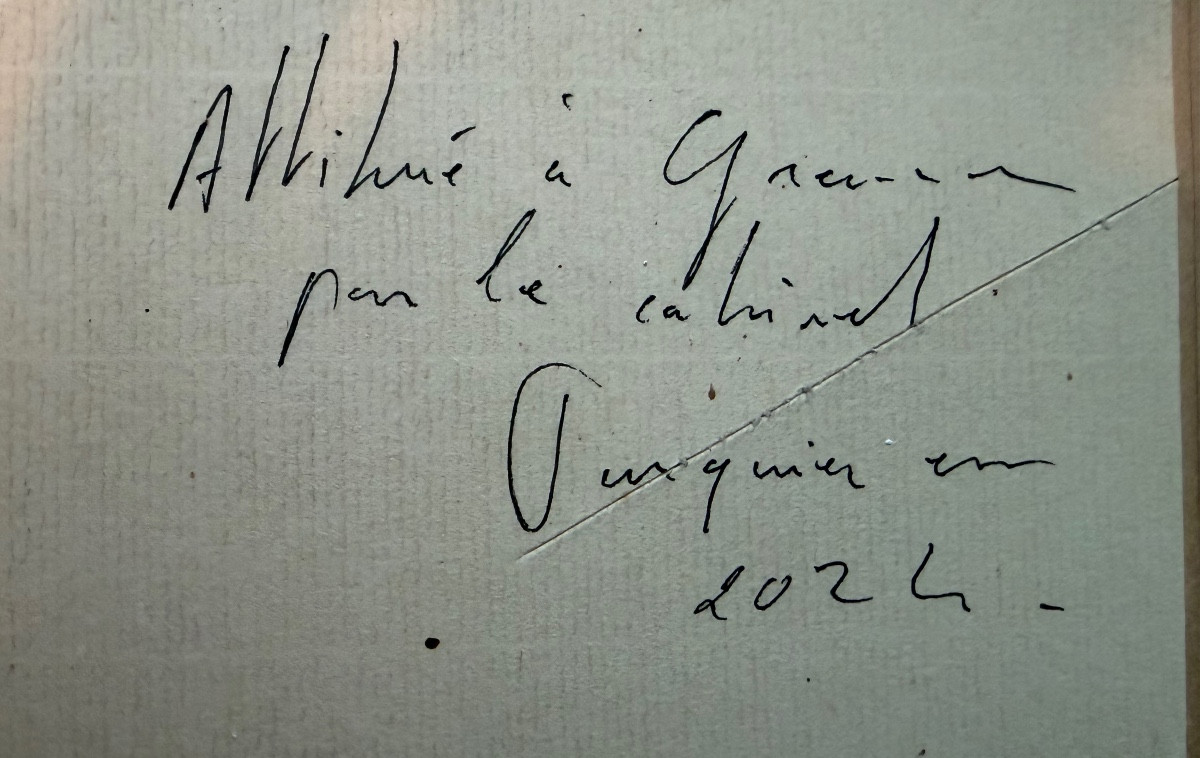 Attribué à
par le cabinet
Turquin en
2024.